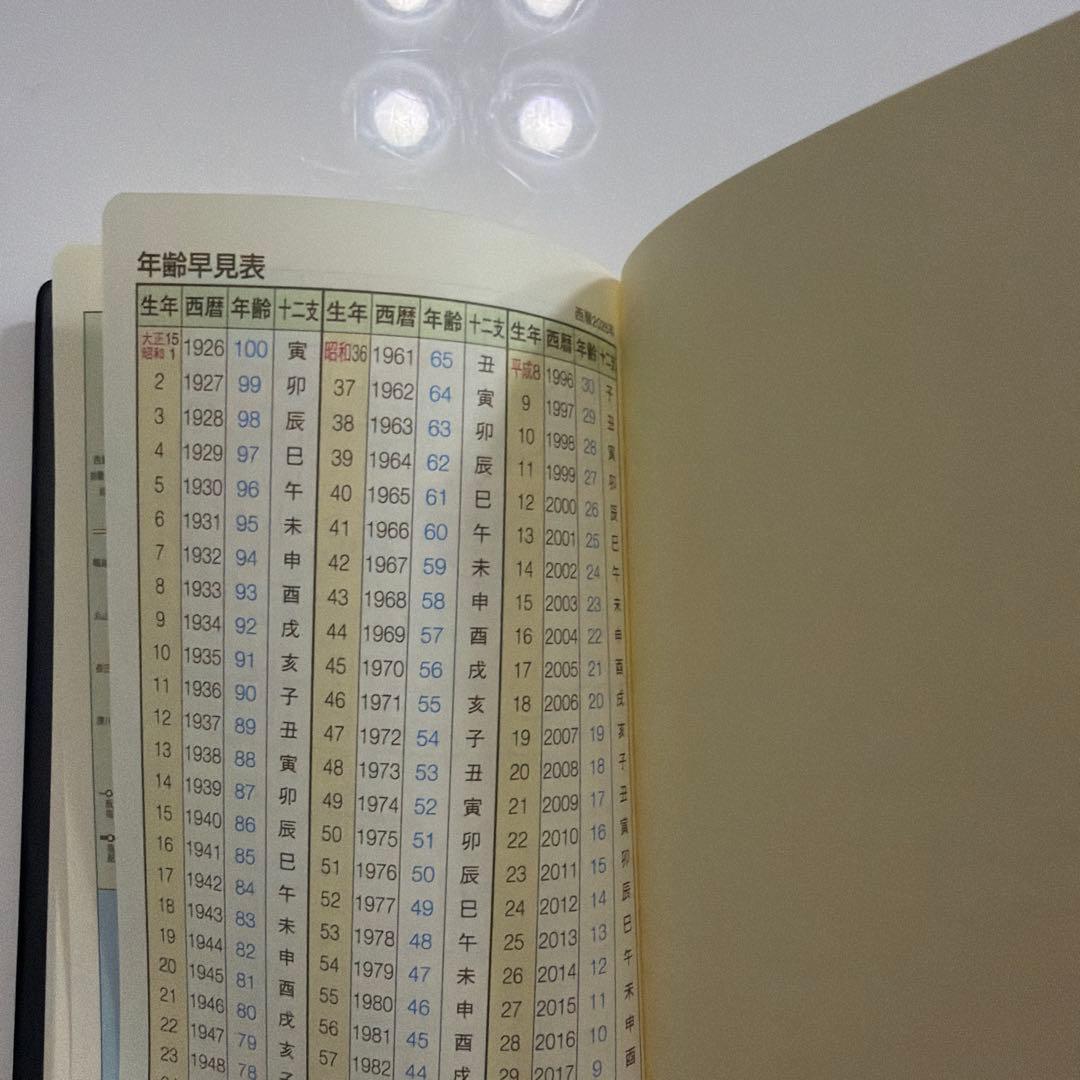 年齢早見表
生年 西暦 年齢 十二支 生年 西暦 年齢 十二支 生年 西暦 年齢 十二支
大正15 昭和 1 1926 100 寅 昭和36 1961 65 丑 平成8 1996 30 子
2 1927 99 卯 37 1962 64 寅 9 1997 29 丑
3 1928 98 辰 38 1963 63 卯 10 1998 28 寅
4 1929 97 巳 39 1964 62 辰 11 1999 27 卯
5 1930 96 午 40 1965 61 巳 12 2000 26 辰
6 1931 95 未 41 1966 60 午 13 2001 25 巳
7 1932 94 申 42 1967 59 未 14 2002 24 午
8 1933 93 酉 43 1968 58 申 15 2003 23 未
9 1934 92 戌 44 1969 57 酉 16 2004 22 申
10 1935 91 亥 45 1970 56 戌 17 2005 21 酉
11 1936 90 子 46 1971 55 亥 18 2006 20 戌
12 1937 89 丑 47 1972 54 子 19 2007 19 亥
13 1938 88 寅 48 1973 53 丑 20 2008 18 子
14 1939 87 卯 49 1974 52 寅 21 2009 17 丑
15 1940 86 辰 50 1975 51 卯 22 2010 16 寅
16 1941 85 巳 51 1976 50 辰 23 2011 15 卯
17 1942 84 午 52 1977 49 巳 24 2012 14 辰
18 1943 83 未 53 1978 48 午 25 2013 13 巳
19 1944 82 申 54 1979 47 未 26 2014 12 午
20 1945 81 酉 55 1980 46 申 27 2015 11 未
21 1946 80 戌 56 1981 45 酉 28 2016 10 申
22 1947 79 亥 57 1982 44 戌 29 2017 9 酉
23 1948 78